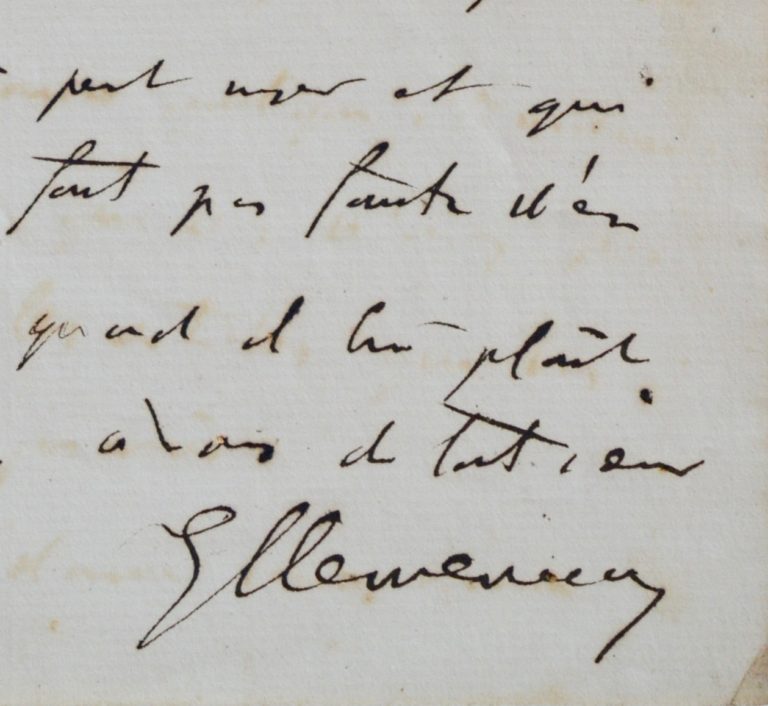 peut user et qui
fait pas faute d'en
quand il lui plaît.
à vous de tout cœur
GClemenceau